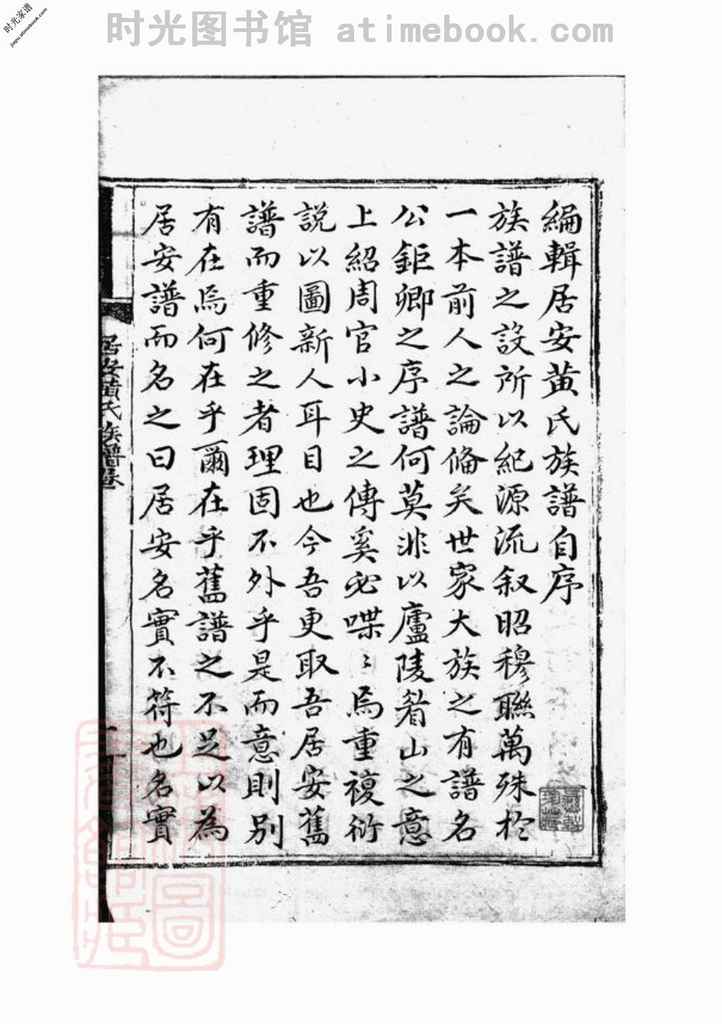 时光图书馆 atimebook.com
时光家谱
编輯居安黄氏族譜自序
族譜之設所以紀源流叙昭穆聯萬殊於
一本前人之論備矣世家大族之有譜名
公鉅卿之序譜何莫非以廬陵眉山之意
上紹周官小史之傳奚必喋〻焉重複衍
説以圖新人耳目也今吾更取吾居安舊
譜而重修之者理固不外乎是而意則别
有在焉何在乎爾在乎舊譜之不足以為
居安譜而名之曰居安名實不符也名實
居安黄氏族譜卷